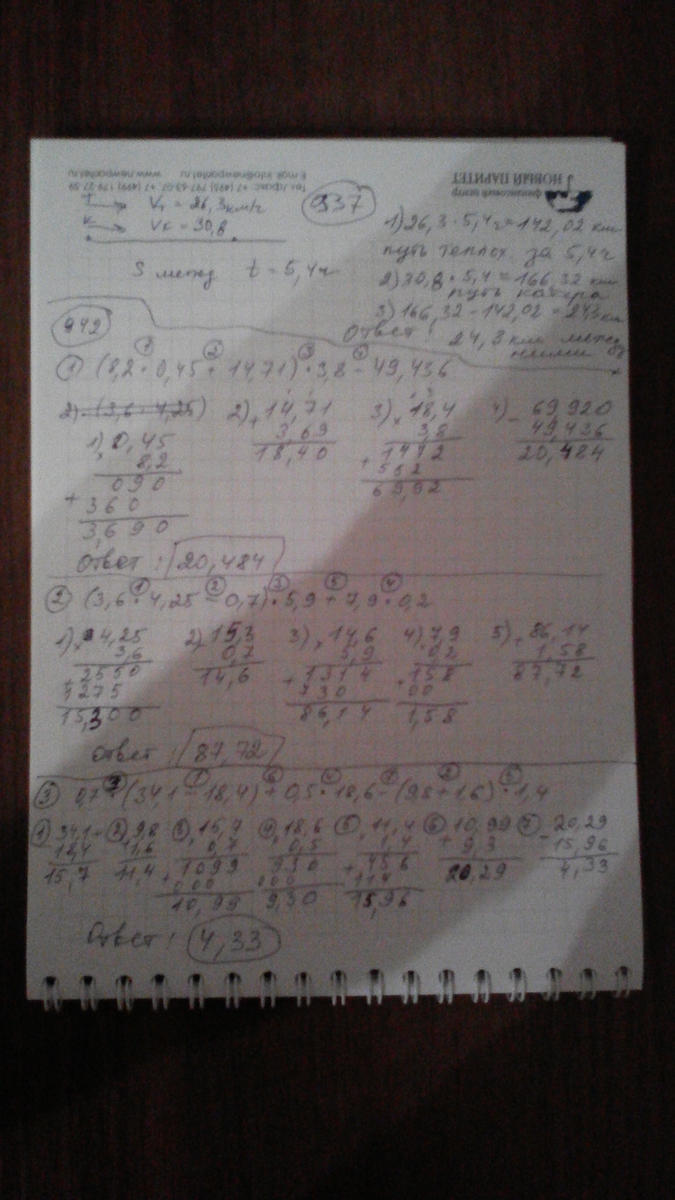 финансовый центр
НОВЫЙ ПАРИТЕТ
937
Т → Vт = 26,3 км/ч
К → Vк = 30,8
S межд t = 5,4 ч
1) 26,3 · 5,4 ч = 142,02 км
путь теплох. за 5,4 ч
2) 30,8 · 5,4 = 166,32 км
путь катера
3) 166,32 - 142,02 = 243 км
Ответ!
24,3 км между
ними
942
① (8,2 · 0,45 + 14,71) · 3,8 - 49,436
2) (3,6 · 4,25)
1) 0,45
8,2
090
+ 360
3,690
2) 14,71
+ 3,69
18,40
3) 18,4
× 3,8
1472
+ 552
69,92
4) 69,920
- 49,436
20,484
Ответ: 20,484
② (3,6 · 4,25 - 0,7) · 5,9 + 7,9 · 0,2
1) 4,25
× 3,6
2550
+ 1275
15,300
2) 15,3
0,7
14,6
3) 14,6
× 5,9
1314
+ 730
86,14
4) 7,9
0,2
158
00
1,58
5) 86,14
+ 1,58
87,72
Ответ: 87,72
③ 0,7 · (34,1 - 18,4) + 0,5 · 18,6 - (9,8 + 1,6) · 1,4
① 34,1
18,4
15,7
② 9,8
1,6
11,4
③ 15,7
0,7
1099
+ 000
10,99
④ 18,6
0,5
930
000
9,30
⑤ 11,4
1,4
+ 456
114
15,96
⑥ 10,99
+ 9,3
20,29
⑦ 20,29
- 15,96
4,33
Ответ! 4,33